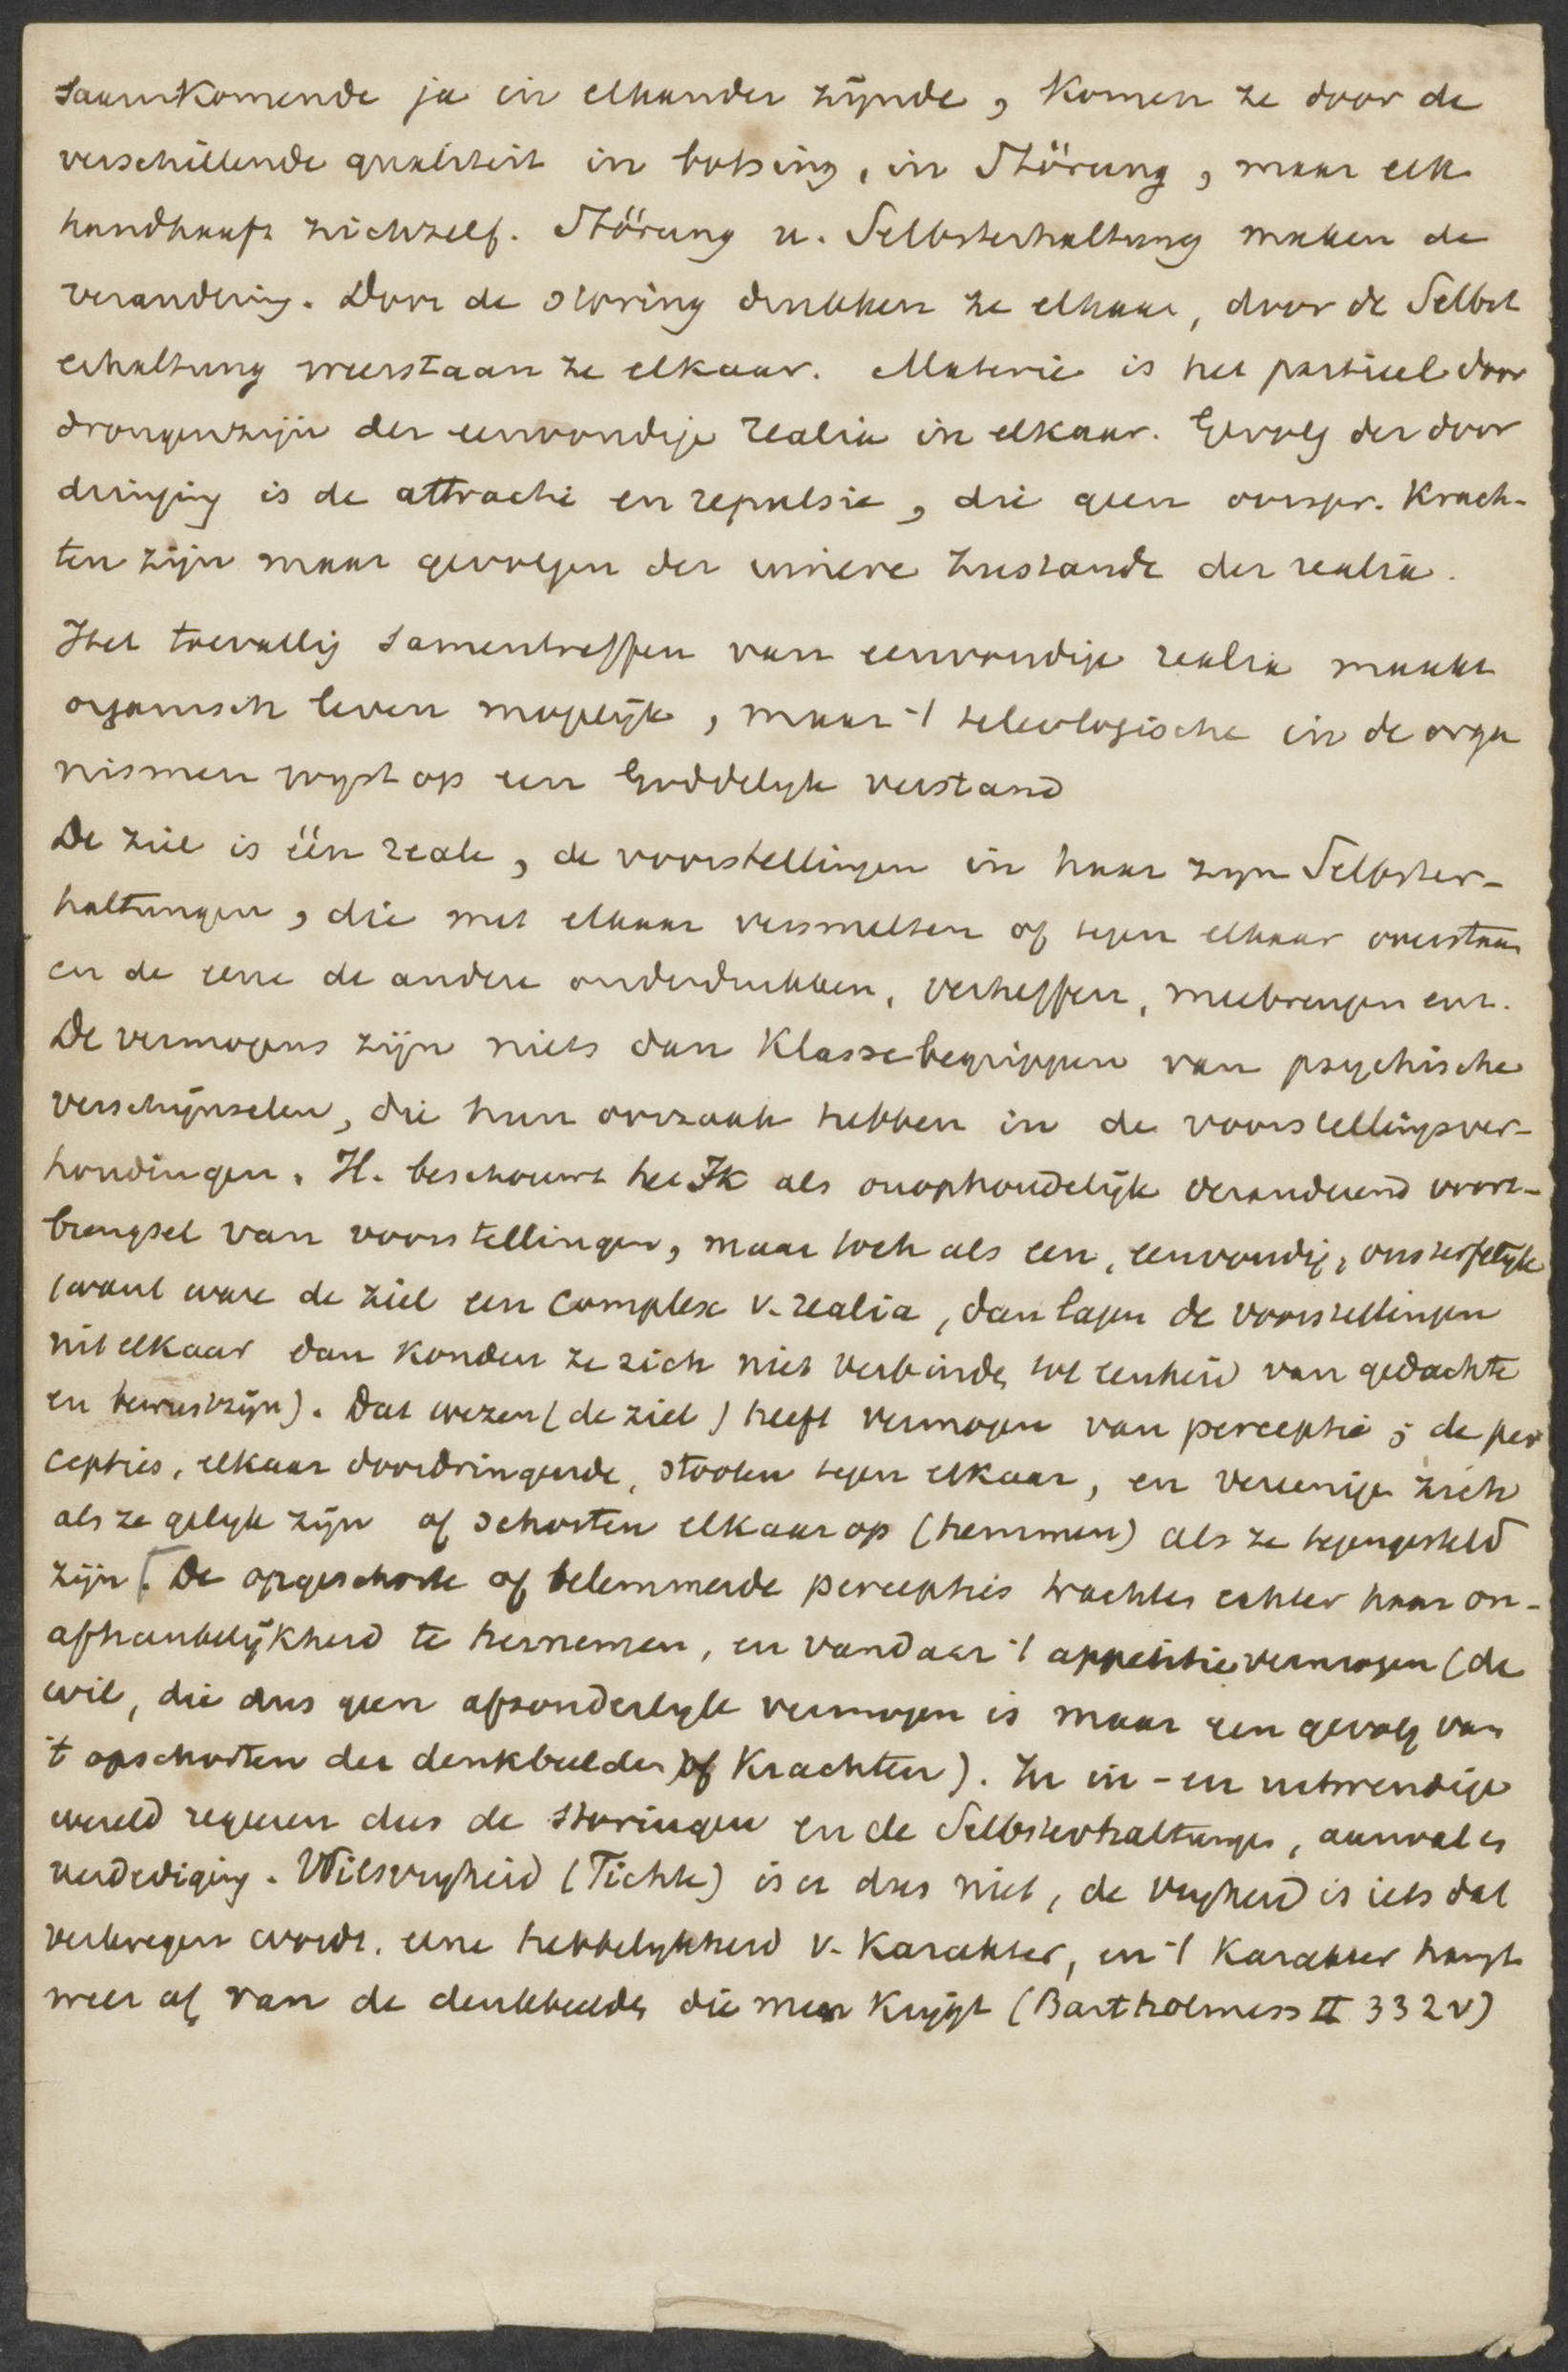 saamkomende ja in elkander zijnde, komen ze door de
verschillende qualiteit in botsing, in Störung, maar elk
handhaaft zichzelf. Störung u. Selbsterhaltung maken de
verandering. Door de storing drukken ze elkaar, door de Selbst
erhaltung weerstaan ze elkaar. Materie is het partieel door
drongenzijn der eenvoudige realia in elkaar. Gevolg der door
dringing is de attractie en repulsie, die geen oorspr. Krach-
ten zijn maar gevolgen der innere Zustande der realia.
Het toevallig samentreffen van eenvoudige realia maakt
organisch leven mogelijk, maar 't teleologische in de orga
nismen wyst op een Goddelyk verstand
De ziel is één reale, de voorstellingen in haar zyn Selbster-
haltungen, die met elkaar versmelten of tegen elkaar overstaan
en de eene de andere onderdrukken, verheffen, meebrengen enz.
De vermogens zijn niets dan Klassebegrippen van psychische
verschijnselen, die hun oorzaak hebben in de voorstellingsver-
houdingen. H. beschouwt het Ik als onophoudelijk veranderend voort-
brengsel van voorstellingen, maar toch als een, eenvoudig, onsterfelijk
(want ware de ziel een complex v. realia, dan lagen de voorstellingen
uit elkaar dan konden ze zich niet verbinden tot eenheid van gedachte
en bewustzijn). Dat wezen (de ziel) heeft vermogen van perceptie; de per
cepties, elkaar doordringende, stooten tegen elkaar, en vereenige zich
als ze gelyk zijn of schorten elkaar op (hemmen) als ze tegengesteld
zijn [. De opgeschorte of belemmerde percepties trachten echter haar on-
afhankelijkheid te hernemen, en vandaar 't appetitievermogen (de
wil, die dus geen afzonderlyk vermogen is maar een gevolg van
't opschorten der denkbeelden of Krachten). In in- en uitwendige
wereld regeeren dus de storingen en de Selbsterhaltungen, aanval en
verdediging. Wilsvryheid (Fichte) is er dus niet, de vryheid is iets dat
verkregen wordt, eene hebbelykheid v. Karakter, en 't Karakter hangt
weer af van de denkbeelden die men krijgt (Bartholmess II 332 v)